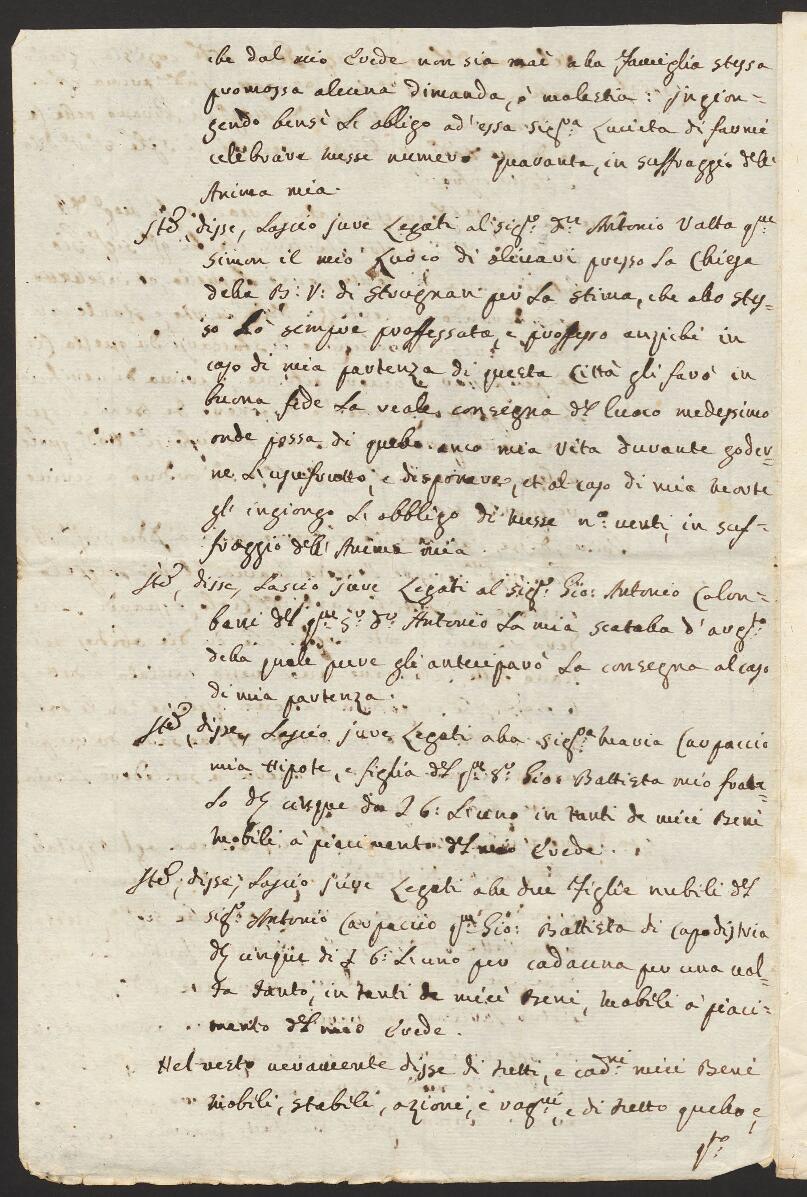 che dal mio Erede non sia mai alla Famiglia stessa
promossa alcuna dimanda, ò molestia: Ingion=
gendo bensì L'obligo ad'essa Sig.ra Lucieta di farmi
celebrare Messe numero quaranta, in suffraggio dell'
Anima mia.
Ité, disse, Lascio jure Legati al Sig.r D.re Antonio Valta q.m
Simon il mio Luoco di olivari presso La Chiesa
della B: V: di Strugnan per La stima, che allo stes=
so hò sempre proffessata, e proffesso anziché in
caso di mia partenza di questa Città gli farò in
buona fede La reale consegna del luoco medessimo
onde possa di quello anco mia vita durante goder=
ne L'usufrutto, e disponere, et al caso di mia Morte
gl'ingiongo L'obbligo di Messe n.o venti, in suf=
fraggio dell'Anima mia.
Ité, disse, Lascio jure Legati al Sig.r Gio: Antonio Colom=
bani del q.m S.r D.r Antonio La mia scatola d'arg.to
della quale pure gli anteciparò La consegna al caso
di mia partenza.
Ité, disse, Lascio jure Legati alla Sig.ra Maria Carpaccio
mia Nipote, e figlia del q.m S.r Gio: Battista mio fratel=
lo D.ti cinque da L 6: L'uno in tanti de miei Beni
Mobili à piacimento del mio Erede.
Ité, disse, Lascio jure Legati alle due Figlie nubili del
Sig.r Antonio Carpaccio q.m Gio: Battista di Capodistria
D.ti cinque di L 6: L'uno per cadauna per una vol=
ta tanto, in tanti de miei Beni, Mobili à piaci=
mento del mio Erede.
Nel resto veramente disse di tutti, e cad.ni miei Beni
Mobili, stabili, azioni, e rag.ni, e di tutto quello, e
q.to